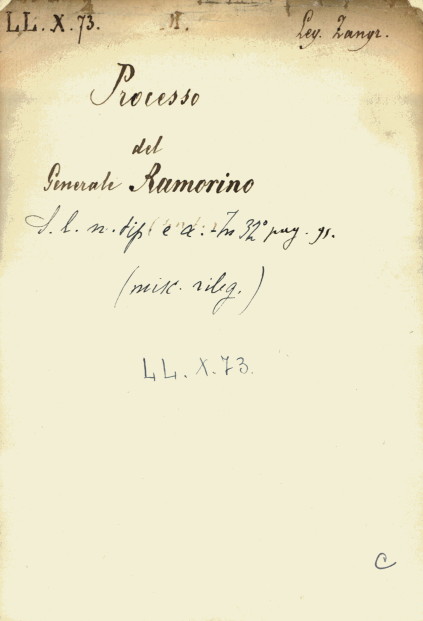 LL. X. 73. M. Leg. Zangr.
Processo
del
Generale Ramorino
S. l. n. tip. e a. In 32º pag. 91.
(misc. rileg.)
LL. X. 73.
C